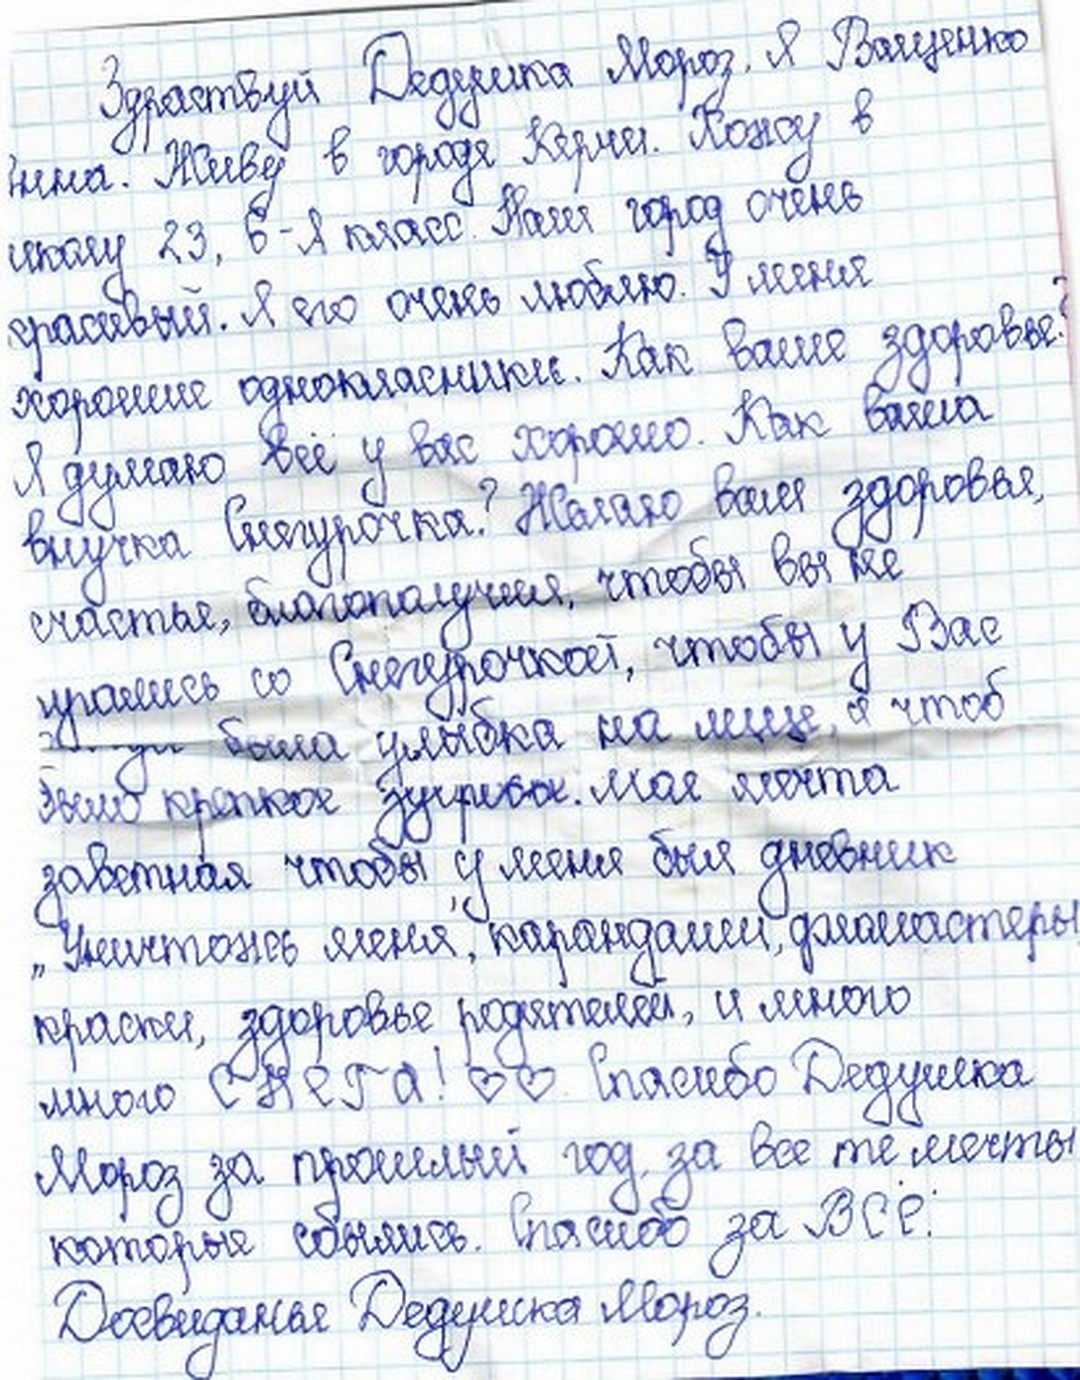 Здраствуй Дедушка Мороз. Я Ващенко
Инна. Живу в городе Керчи. Хожу в
школу 23, 6-Я класс. Наш город очень
красивый. Я его очень люблю. У меня
хорошие однокласники. Как ваше здоровье?
Я думаю всё у вас хорошо. Как ваша
внучка Снегурочка? Желаю вам здоровья,
счастья, благополучия, чтобы вы не
со Снегурочкой, чтобы у Вас
была улыбка на лице, а чтоб
было крепкое Моя мечта
заветная чтобы у меня был дневник
„Уничтожь меня", карандаши, фломастеры,
краски, здоровье родителей, и много
много СНЕГА! ♡♡ Спасибо Дедушка
Мороз за прошлый год, за все те мечты
которые сбылись. Спасибо за ВСЁ!
Досвиданья Дедушка Мороз.